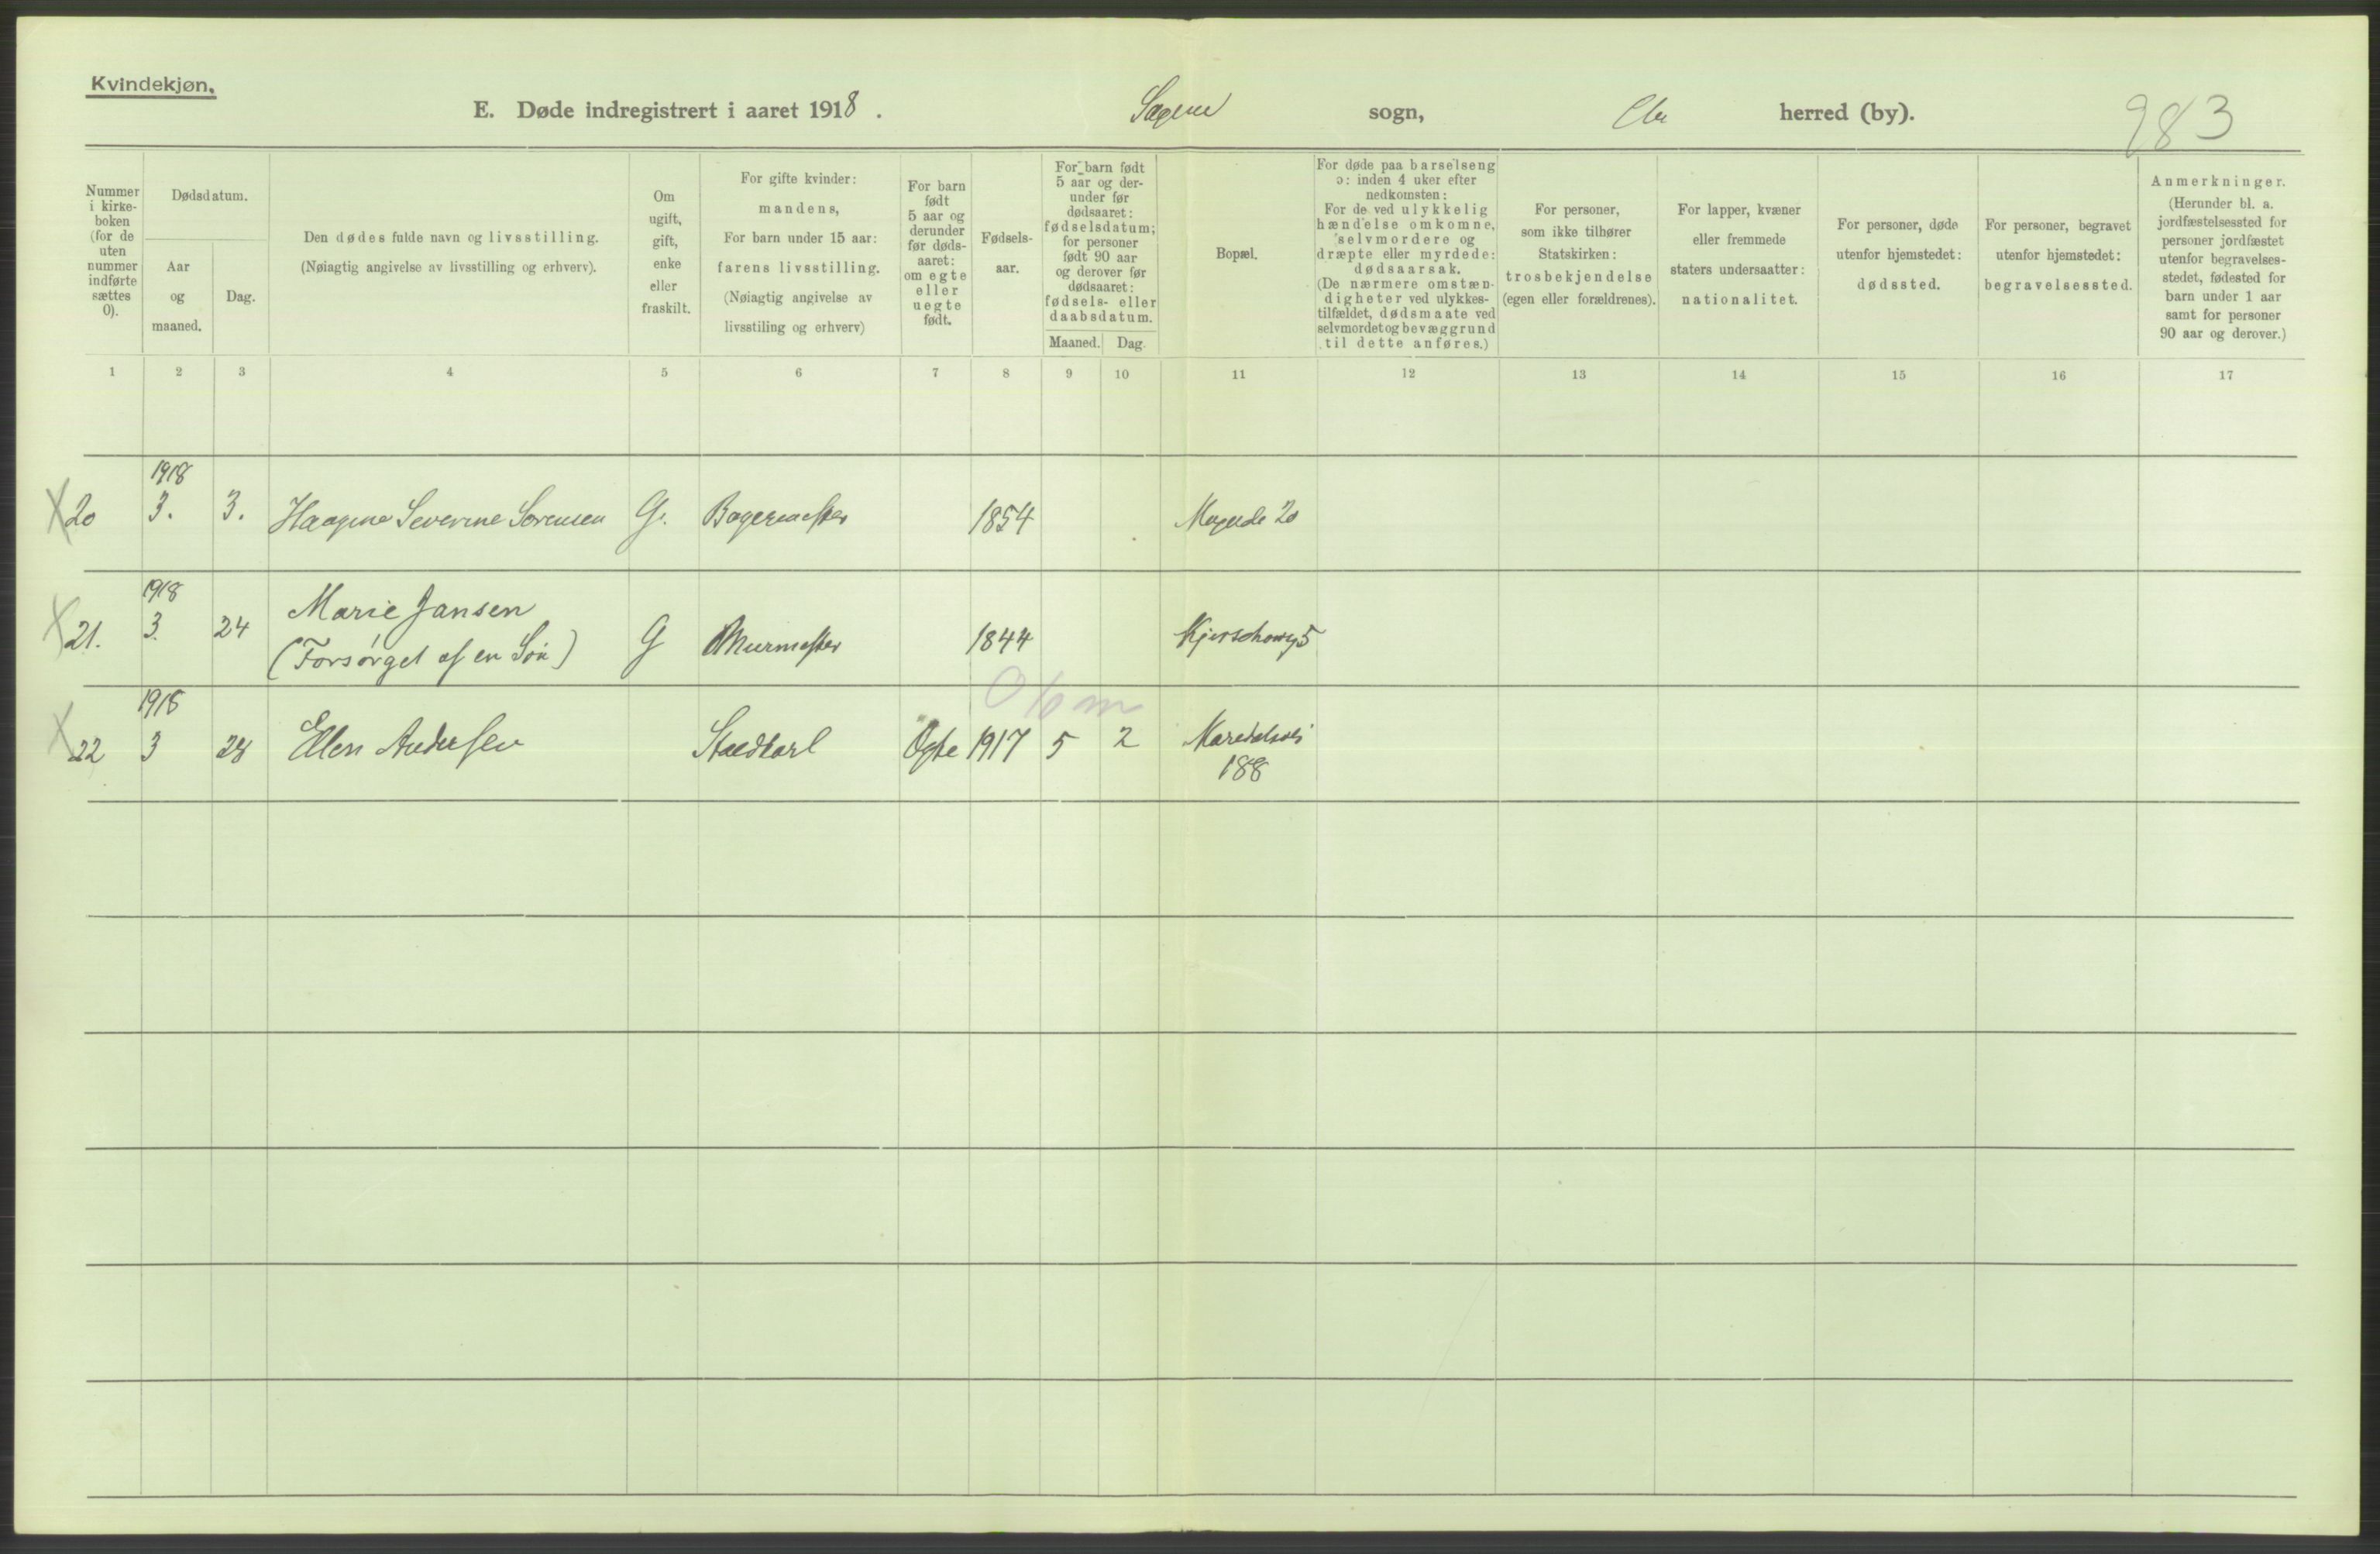 Kvindekjøn.
E. Døde indregistrert i aaret 1918. Sagene sogn, Chr herred (by). 983
Nummer i kirkeboken (for de uten nummer indførte sættes 0).
Dødsdatum.
Aar og maaned.
Dag.
Den dødes fulde navn og livsstilling.
(Nøiagtig angivelse av livsstilling og erhverv).
Om ugift, gift, enke eller fraskilt.
For gifte kvinder:
mandens,
For barn under 15 aar:
farens livsstilling.
(Nøiagtig angivelse av
livsstiling og erhverv)
For barn født 5 aar og derunder før dødsaaret: om egte eller uegte født.
Fødselsaar.
For barn født 5 aar og derunder før dødsaaret: fødselsdatum; for personer født 90 aar og derover før dødsaaret: fødsels- eller daabsdatum.
Maaned. Dag.
Bopæl.
For døde paa barselseng
ɔ: inden 4 uker efter
nedkomsten:
For de ved ulykkelig
hændelse omkomne,
selvmordere og
dræpte eller myrdede:
dødsaarsak.
(De nærmere omstæn-
digheter ved ulykkes-
tilfældet, dødsmaate ved
selvmordet og bevæggrund
til dette anføres.)
For personer,
som ikke tilhører
Statskirken:
trosbekjendelse
(egen eller forældrenes).
For lapper, kvæner
eller fremmede
staters undersaatter:
nationalitet.
For personer, døde
utenfor hjemstedet:
dødssted.
For personer, begravet
utenfor hjemstedet:
begravelsessted.
Anmerkninger.
(Herunder bl. a.
jordfæstelsessted for
personer jordfæstet
utenfor begravelses-
stedet, fødested for
barn under 1 aar
samt for personer
90 aar og derover.)
1 2 3 4 5 6 7 8 9 10 11 12 13 14 15 16 17
1918
X 20 3. 3. Haagine Severine Sørensen G. Bagermester 1854 20
1918
X 21. 3. 24 Marie Jansen
(Forsørget af en Søn) G Murmester 1844 Kjerschowsg 5
1918
0 10 m
X 22 3 28 Ellen Andersen Staldkarl Ægte 1917 5 2 Maridalsvei
188